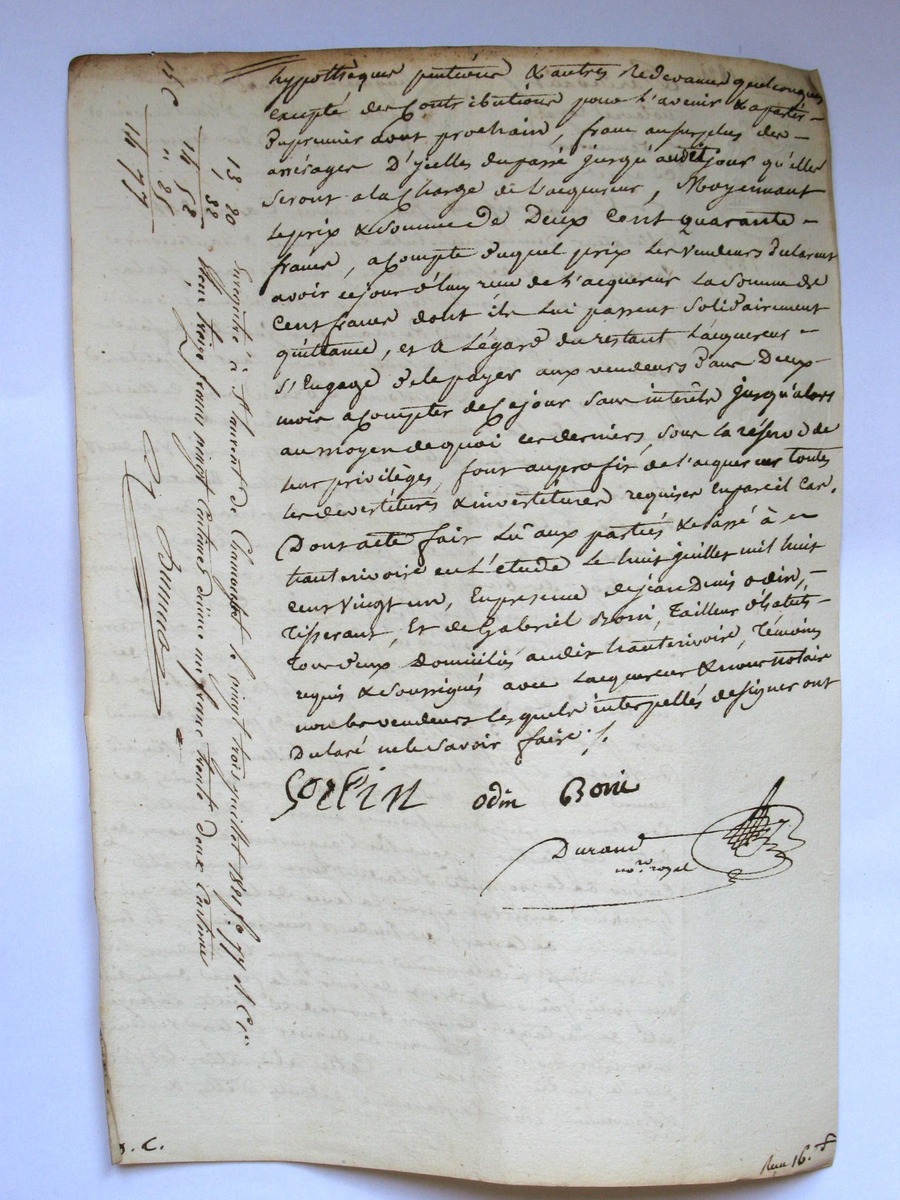 hypothèques pentières & autres Redevances quelconques
excepté des Contributions pour l'avenir & aparts -
Dupremier aout prochain, franc ausurplus des -
arrérages D'jcelles dupassé jusqu'audit jour qu'elles
seront ala Charge de l'acquereur, Moyennant
Leprix & Somme de Deux Cent quarante -
francs, acompte duquel prix les vendeurs Declarent
avoir cejour d'huy recu de l'acquereur La Somme de
Cent francs dont ils Lui passent Solidairement
quittance, et a L'égard du restant Lacquereur -
S'Engage de le payer aux vendeurs dans Deux -
mois a Compter de Cejour Sans interêts jusqu'alors
au moyen de quoi ces derniers, sous la réserve de
leur privilèges, font auprofit de l'acquereur toutes
les devestitures & investitures requises en pareil Cas.
Dont acte fait Lû aux parties & Passé à
hauterivoire en L'étude Le huit juillet mil huit
Cent Vingt un, En presence de jean Denis odin, -
Tisserant, Et de Gabriel Boni, Tailleur d'habits -
Tous deux domiciliés audit hauterivoire, Témoins
requis & Soussignés avec Lacquereur & nous notaire
non les vendeurs lesquels interpellés de signer ont
Declaré ne le Savoir faire ./.
odin Boni
Durand
no.re royal
Enregistré à St Laurent de Chamousset le vingt trois juillet 1821 f.o 77 Rt C
Reçu treize francs vingt Centimes dixième un franc trente deux Centimes
15 C
13 20
1 32
14 52
" 25
14 77
16.